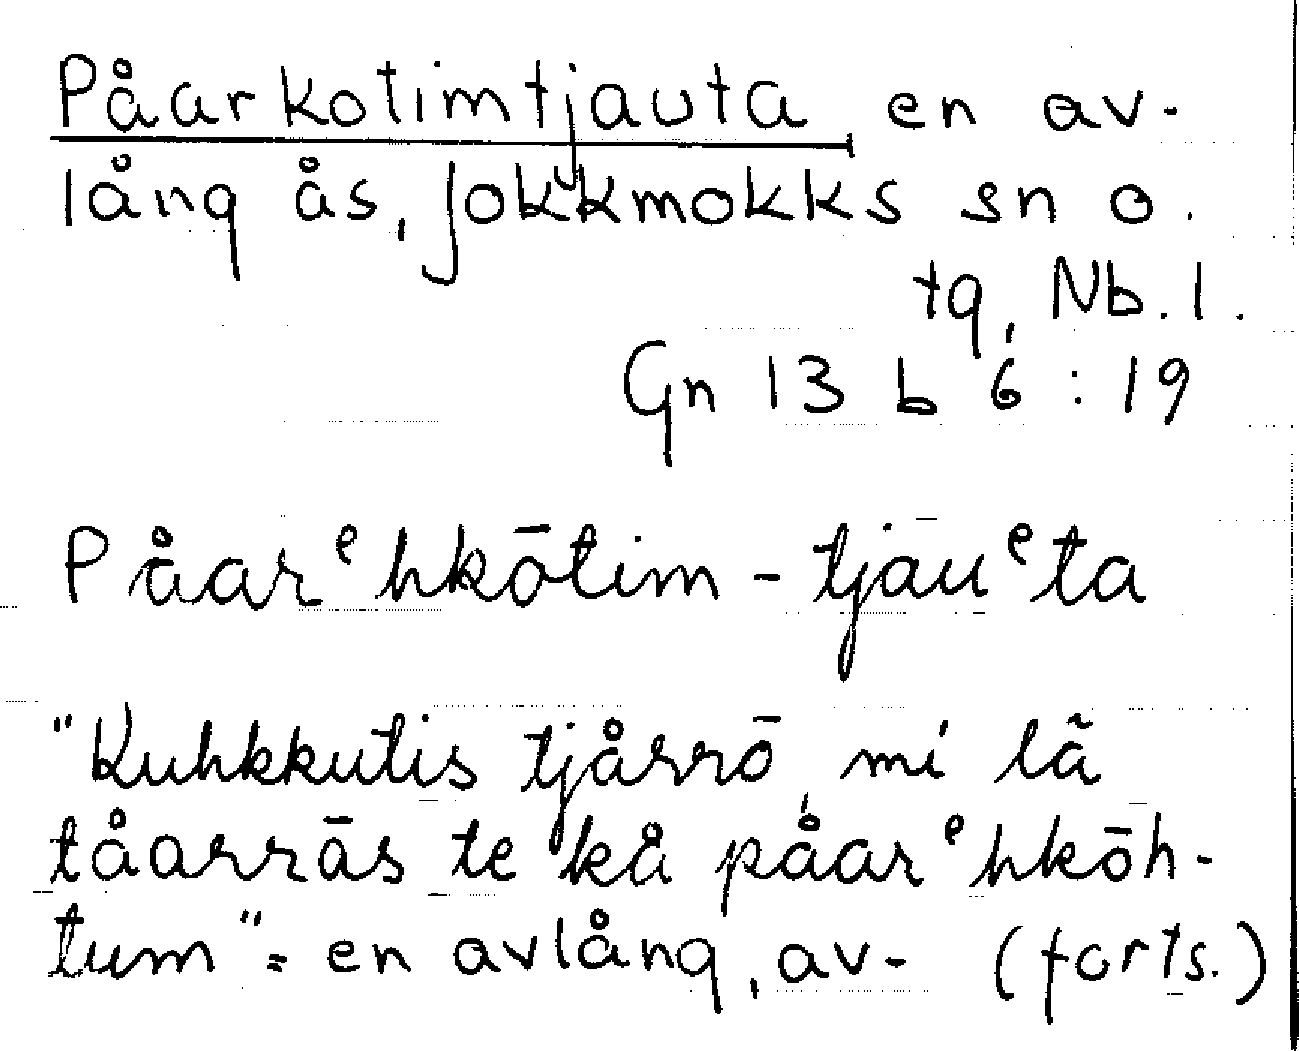 Påarkotimtjauta en av-
lång ås, Jokkmokks sn o.
tg, Nb. l.
Gn 13 b 6 : 19
Påarᵉhkōtim - tjāuᵉta
"Kuhkkutis tjårrō mi lä
tåarrās te kå påarᵉhkōh-
tum" = en avlång, av- (forts.)